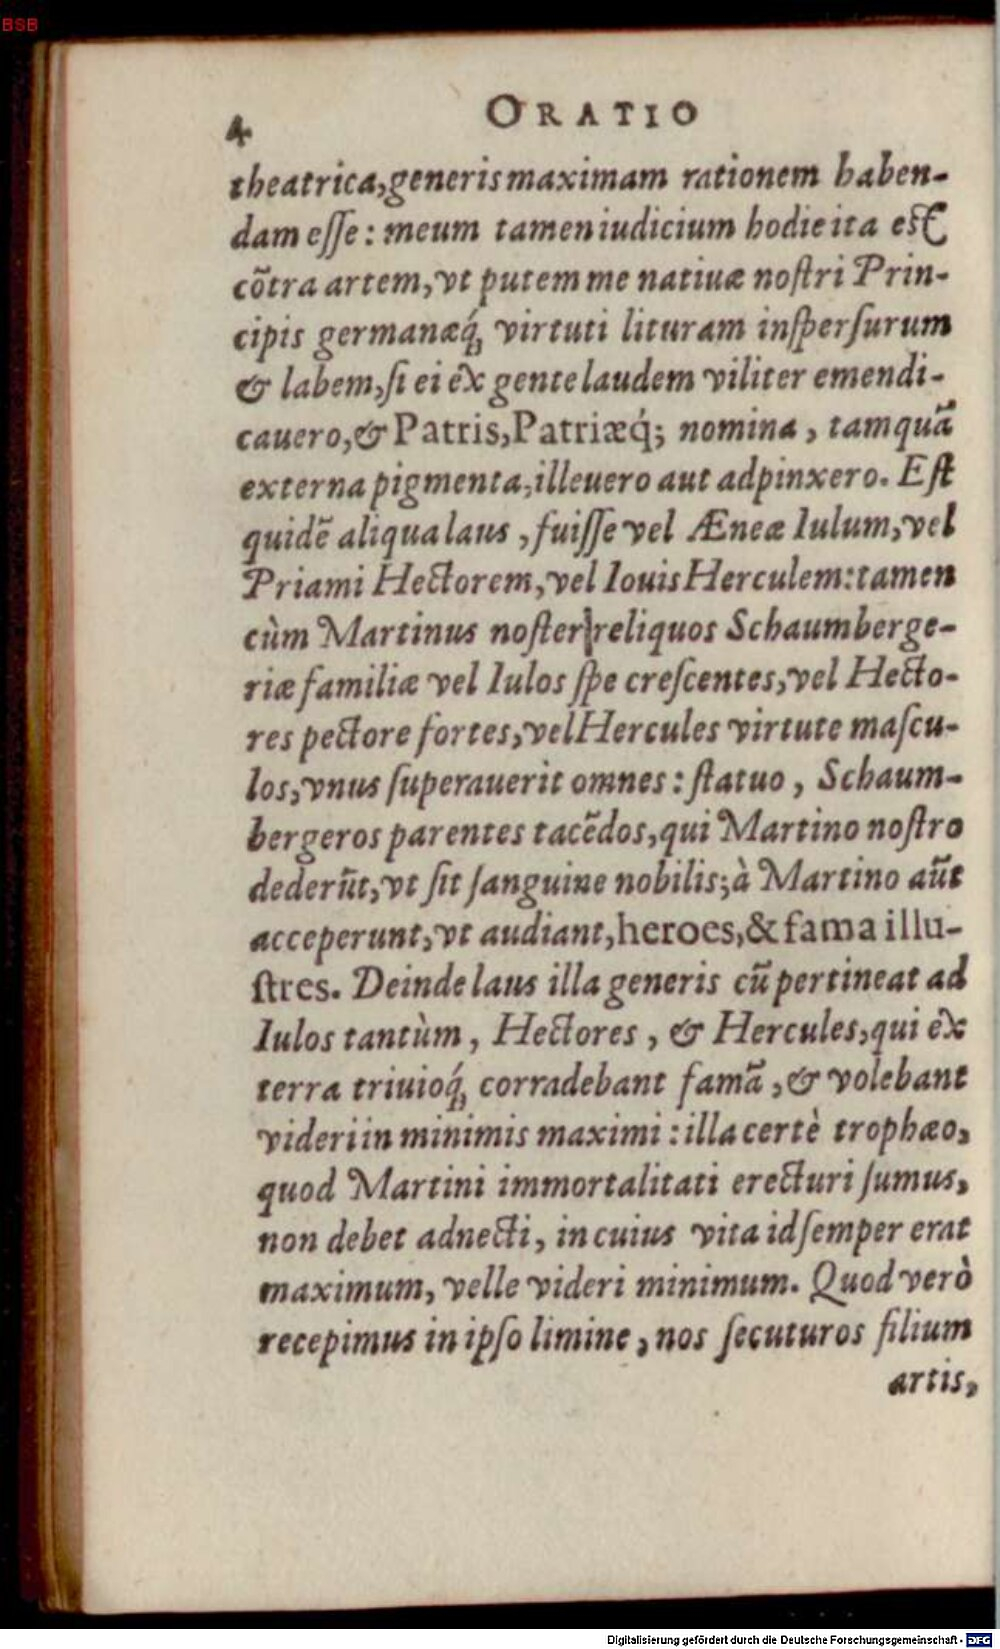 BSB
4 ORATIO
theatrica, generis maximam rationem haben-
dam eſſe: meum tamen iudicium hodie ita eſt
cõtra artem, vt putem me natiuæ noſtri Prin-
cipis germanæq́; virtuti lituram inſperſurum
& labem, ſi ei ex gente laudem viliter emendi-
cauero, & Patris, Patriæq́; nomina, tamquã
externa pigmenta, illeuero aut adpinxero. Eſt
quidẽ aliqua laus, fuiſſe vel Æneæ Iulum, vel
Priami Hectorem, vel Iouis Herculem: tamen
cùm Martinus noſter reliquos Schaumberge-
riæ familiæ vel Iulos ſpe creſcentes, vel Hecto-
res pectore fortes, vel Hercules virtute maſcu-
los, vnus ſuperauerit omnes: ſtatuo, Schaum-
bergeros parentes tacẽdos, qui Martino noſtro
dederũt, vt ſit ſanguine nobilis; à Martino aũt
acceperunt, vt audiant, heroes, & fama illu-
ſtres. Deinde laus illa generis cũ pertineat ad
Iulos tantùm, Hectores, & Hercules, qui ex
terra triuioq́; corradebant famã, & volebant
videri in minimis maximi: illa certè trophæo,
quod Martini immortalitati erecturi ſumus,
non debet adnecti, in cuius vita id ſemper erat
maximum, velle videri minimum. Quod verò
recepimus in ipſo limine, nos ſecuturos filium
artis,
Digitalisierung gefördert durch die Deutsche Forschungsgemeinschaft - DFG